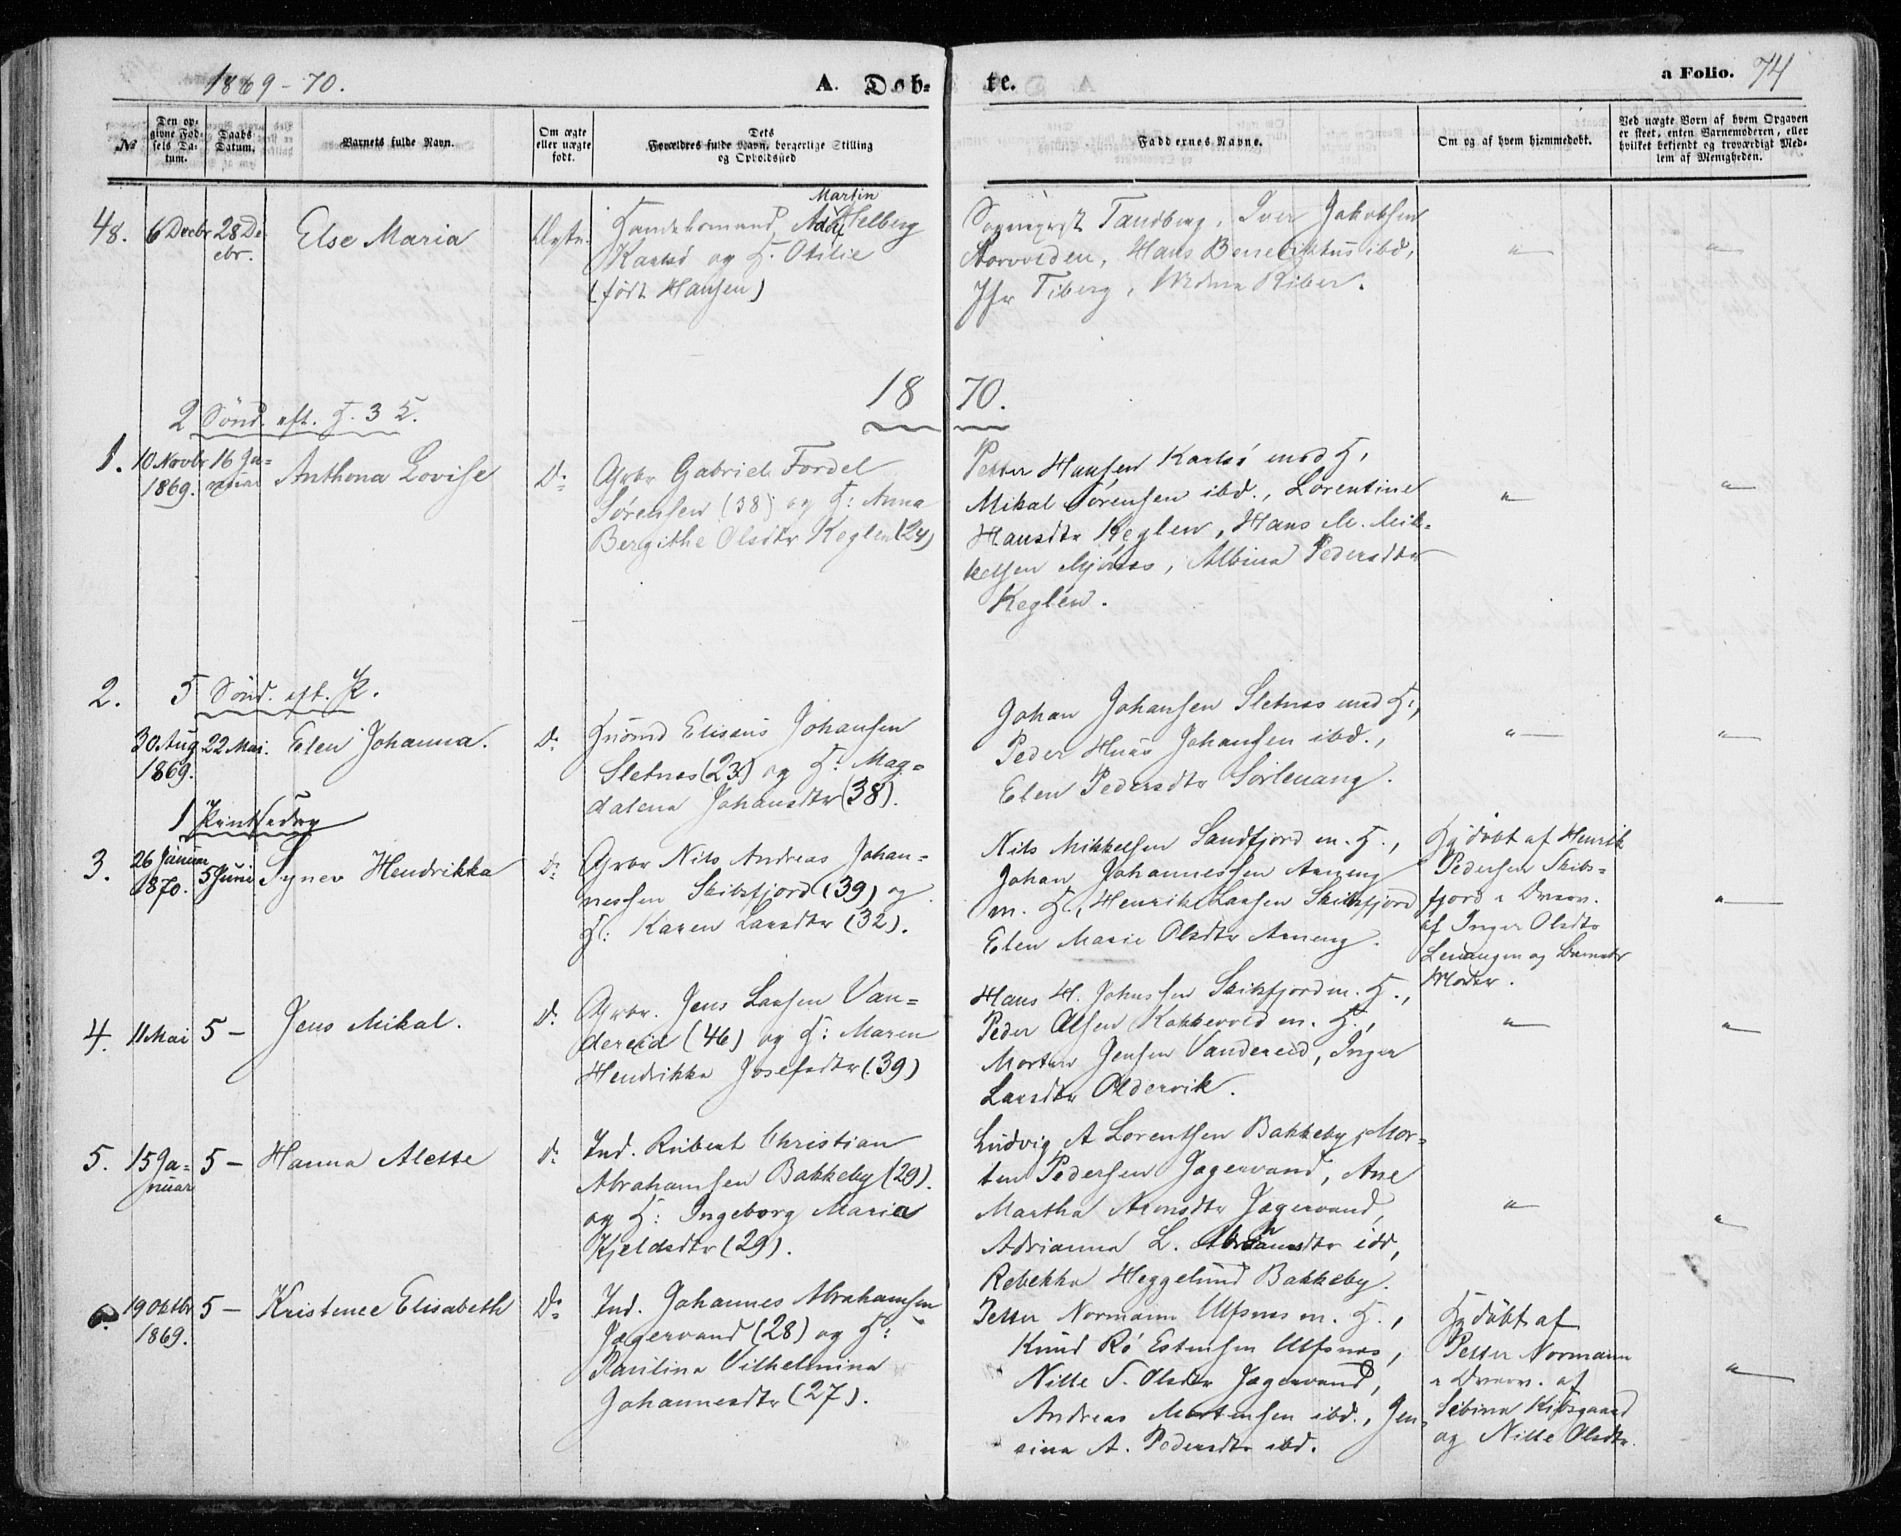 1869-70.
A. Døb-
te.
a Folio. 74
No
Den opgivne Fødsels Datum.
Daabs Datum.
Barnets fulde Navn.
Om ægte eller uægte født.
Dets Forældres fulde Navn, borgerlige Stilling og Opholdssted
Faddernes Navne.
Om og af hvem hjemmedøbt.
Ved uægte Børn af hvem Opgaven er skeet, enten Barnemoderen, eller hvilket bekjendt og troværdigt Medlem af Menigheden.
48.
6 Decbr
28 De-
cbr.
Else Maria
Ægte.
Martin
Handelsmand Adolf Selberg
Karlsø og H. Otilie
(født Hansen)
Sogneprest Tandberg, Iver Jakobsen
Storvolden, Hans Benediktus ibd,
Jfr Tiberg, Mdma Kiber.
"
"
1870.
2 Sønd. eft. H. 3 K.
1.
10 Novbr
1869.
16 Ja-
nuar
Anthona Lovise
Do
Grbr Gabriel Fordel
Sørensen (38) og H: Anna
Bergithe Olsdtr Keglen (24)
Petter Hansen Karlsø med H,
Mikal Sørensen ibd., Lorentine
Hansdtr Keglen, Hans M. Mik-
kelsen Mjønes, Albina Pedersdtr
Keglen.
"
"
2.
5 Sønd. eft. P.
30 Aug
1869.
22 Mai.
Elen Johanna.
Do
Husmd Elisæus Johansen
Sletnes (23) og H: Mag-
dalena Johansdtr (38).
Johan Johansen Sletnes med H.,
Peder Huas Johansen ibd.,
Elen Pedersdtr Sørlenang.
"
"
1 Pintsedag
3.
26 Januar
1870.
5 Juni
Synev Hendrikka
Do
Grbr Nils Andreas Johan-
nessen Skibsfjord (39) og
H: Karen Larsdtr (32).
Nils Mikkelsen Sandfjord m. H.,
Johan Johannessen Arneng
m. H., Henrik Larsen Skibsfjord
Elen Marie Olsdtr Arneng.
Hjdøbt af Henrik
Pedersen Skibs-
fjord i Overv.
af Inger Olsdtr
Lenangen og Barnets
Moder.
"
4.
11 Mai
5 -
Jens Mikal.
Do
Grbr. Jens Larsen Van-
dereid (46) og H: Maren
Hendrikka Josefsdtr (39)
Hans H. Johnssen Skibsfjord m. H.,
Peder Olsen Kokkevold m. H.,
Morten Jensen Vandereid, Inger
Larsdtr Oldervik.
"
"
5.
15 Ja-
nuar
5 -
Hanna Alette
Do
Ind. Rubert Christian
Abrahamsen Bakkeby (29).
og H: Ingeborg Maria
Kjeldsdtr (29).
Ludvig A Lorentsen Bakkeby, Mor-
ten Pedersen Jægervand, Ane
Martha Arnsdtr Jægervand,
Adrianna L. Abrahamsdtr idd,
Rebekka Heggelund Bakkeby.
"
"
6.
19 Oktbr
1869.
5 -
Kristence Elisabeth
Do
Ind. Johannes Abrahamsen
Jægervand (28) og H:
Paulina Vilhelmina
Johannesdtr (27).
Petter Normann Ulfsnes m. H.,
Knud Rø Estensen Ulfsnes,
Nille S. Olsdtr Jægervand,
Andreas Mortensen ibd., Jen-
sina A. Pedersdtr ibd.
Hjdøbt af
Petter Normann
i Overv. af
Sebina Kilsgaard
og Nille Olsdtr.
"